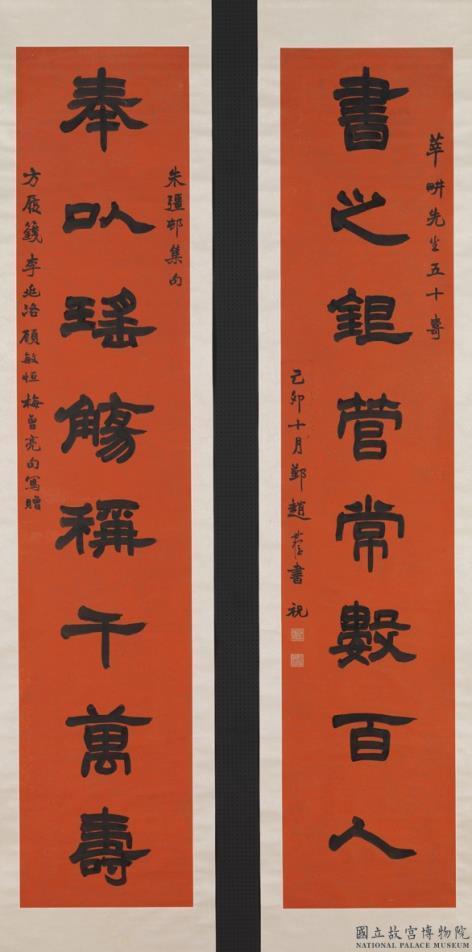 莘畊先生五十壽
書之銀管常數百人
己卯十月鄞趙
書祝
朱彊邨集句
奉以瑤觴稱千萬壽
方履籛李兆洛顧敏恒梅曾亮句寫贈
國立故宮博物院
NATIONAL PALACE MUSEUM